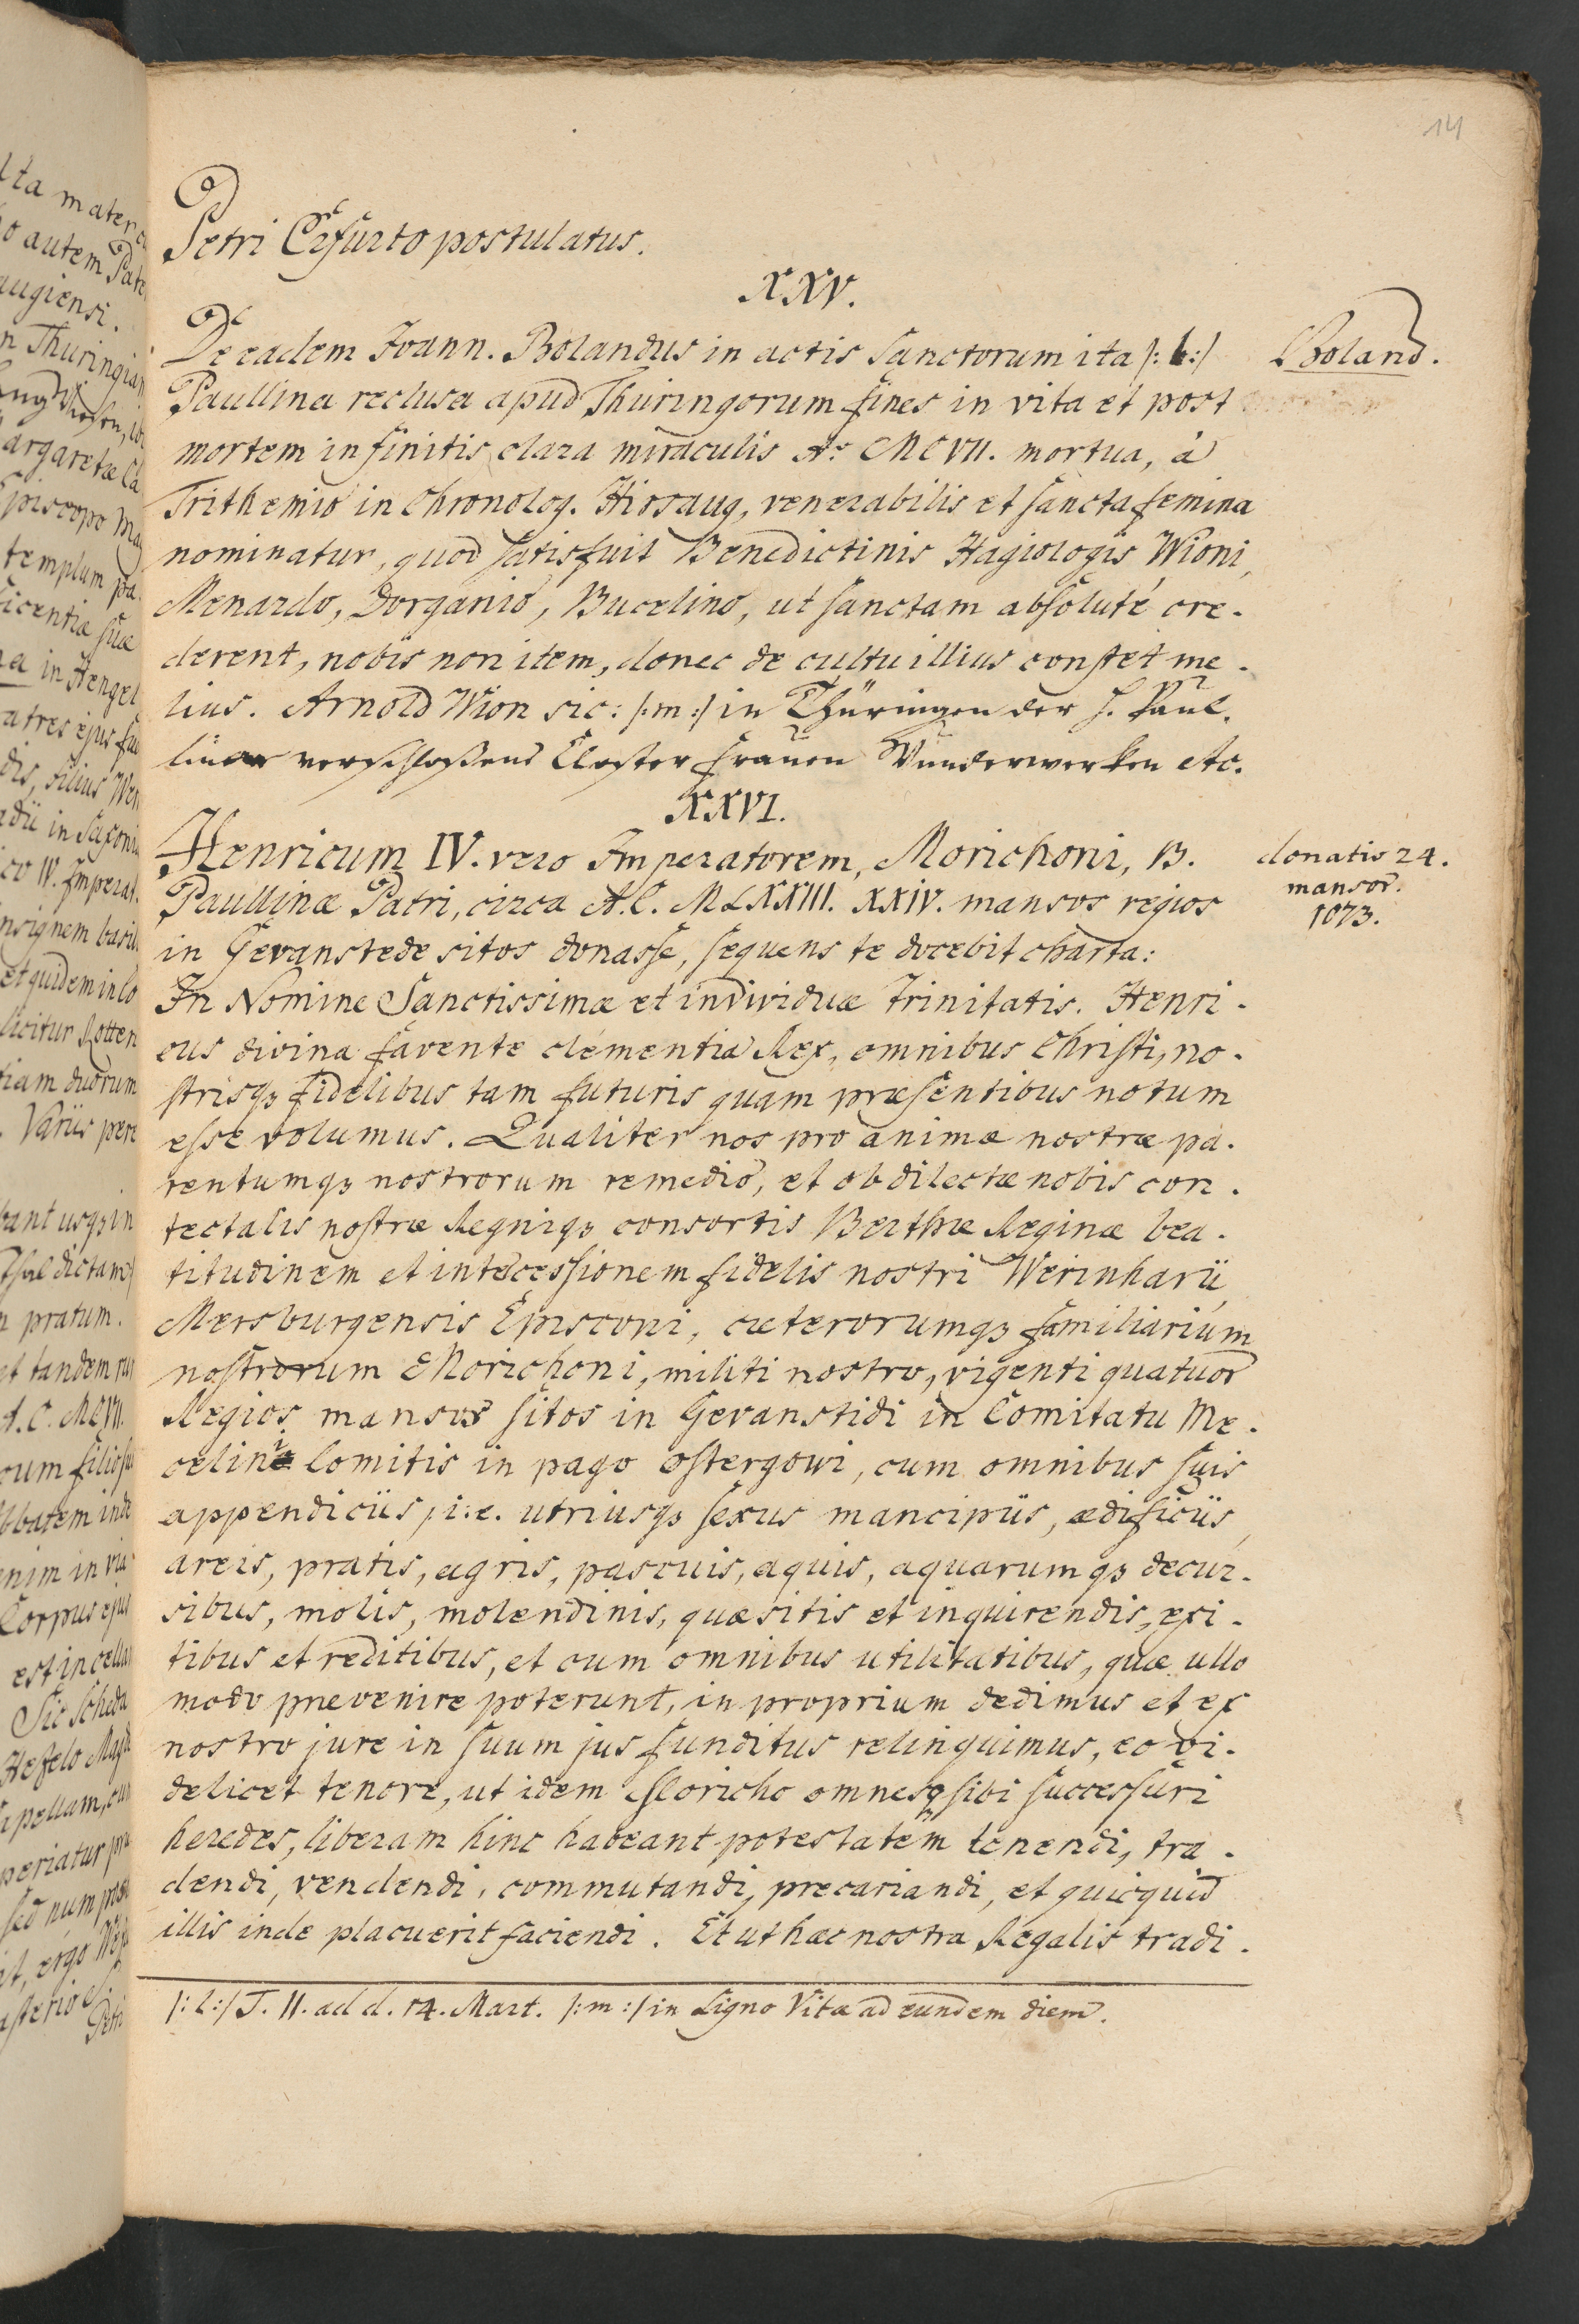 14
Petri Erfurto postulatus.
XXV.
De eadem Joann. Bolandus in actis Sanctorum ita /: l :/
Boland.
Paullina reclusa apud Thuringorum fines in vita et post
mortem infinitis clara miraculis Ao MCVII. mortua, à
Trithemio in Chronolog. Hirsaug, venerabilis et sancta femina
nominatur, quod satis fuit Benedictinis Hagiologis Wioni,
Menardo, Dorganio, Bucelino, ut sanctam absoluté cre-
derent, nobis non item, donec de cultu illius constet me-
lius. Arnold Wion sic: /: m :/ in Thüringen der H. Paul-
linae verschloßene Closter Frauen Wunderwerken etc.
XXVI.
Henricum IV. vero Imperatorem, Morichoni, B.
donatis 24.
mansor.
1073.
Paullinæ Patri, circa A.C. MLXXIII. XXIV. mansos regios
in Gevanstede sitos donasse, sequens te docebit charta:
In Nomine Sanctissimæ et individuæ Trinitatis. Henri-
cus divina favente clementia Rex, omnibus Christi, no-
strisq3 fidelibus tam futuris quam præsentibus notum
esse volumus. Qualiter nos pro animæ nostræ pa-
rentumq3 nostrorum remedio, et ob dilectæ nobis con-
tectalis nostræ Regniq3 consortis Berthæ Reginæ bea-
titudinem et intercessionem fidelis nostri Werinharii
Mersburgensis Episcopi, cæterorumq3 familiarium
nostrorum Morichoni, militi nostro, vigenti quatuor
Regios mansos sitos in Gevanstidi in Comitatu Me-
celini Comitis in pago ostergowi, cum omnibus suis
appendiciis, i.e. utriusq3 sexus mancipiis, ædificiis,
areis, pratis, agris, pascuis, aquis, aquarumq3 decur-
sibus, molis, molendinis, quæsitis et inquirendis, exi-
tibus et reditibus, et cum omnibus utilitatibus, quæ ullo
modo prevenire poterunt, in proprium dedimus et ex
nostro jure in suum jus funditus relinquimus, eo vi-
delicet tenore, ut idem Moricho omnesq sibi successuri
heredes, liberam hinc habeant potestatem tenendi, tra-
dendi, vendendi, commutandi, precariandi, et quicquid
illis inde placuerit faciendi. Et ut hæc nostra Regalis tradi-
/: l :/ T. II. ad d. 14. Mart. /: m :/ in Ligno Vitæ ad eundem diem.